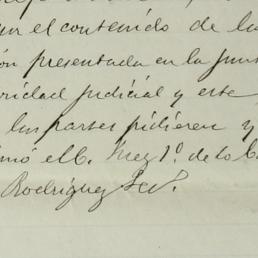 ur el contenido de la
ón presentada en la Junt
oridad judicial y este
las partes pidieren y
imó el C. Juez 1.º de lo C
Rodriguez